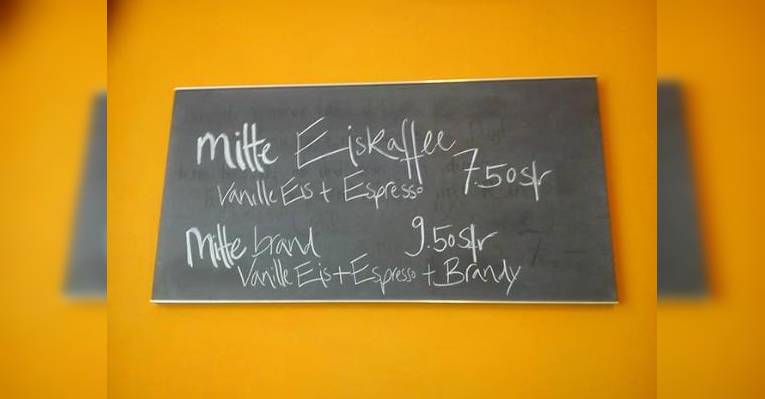 mitte Eiskaffee
7.50 sfr
Vanille Eis + Espresso
Mitte brand 9.50 sfr
Vanille Eis + Espresso + Brandy